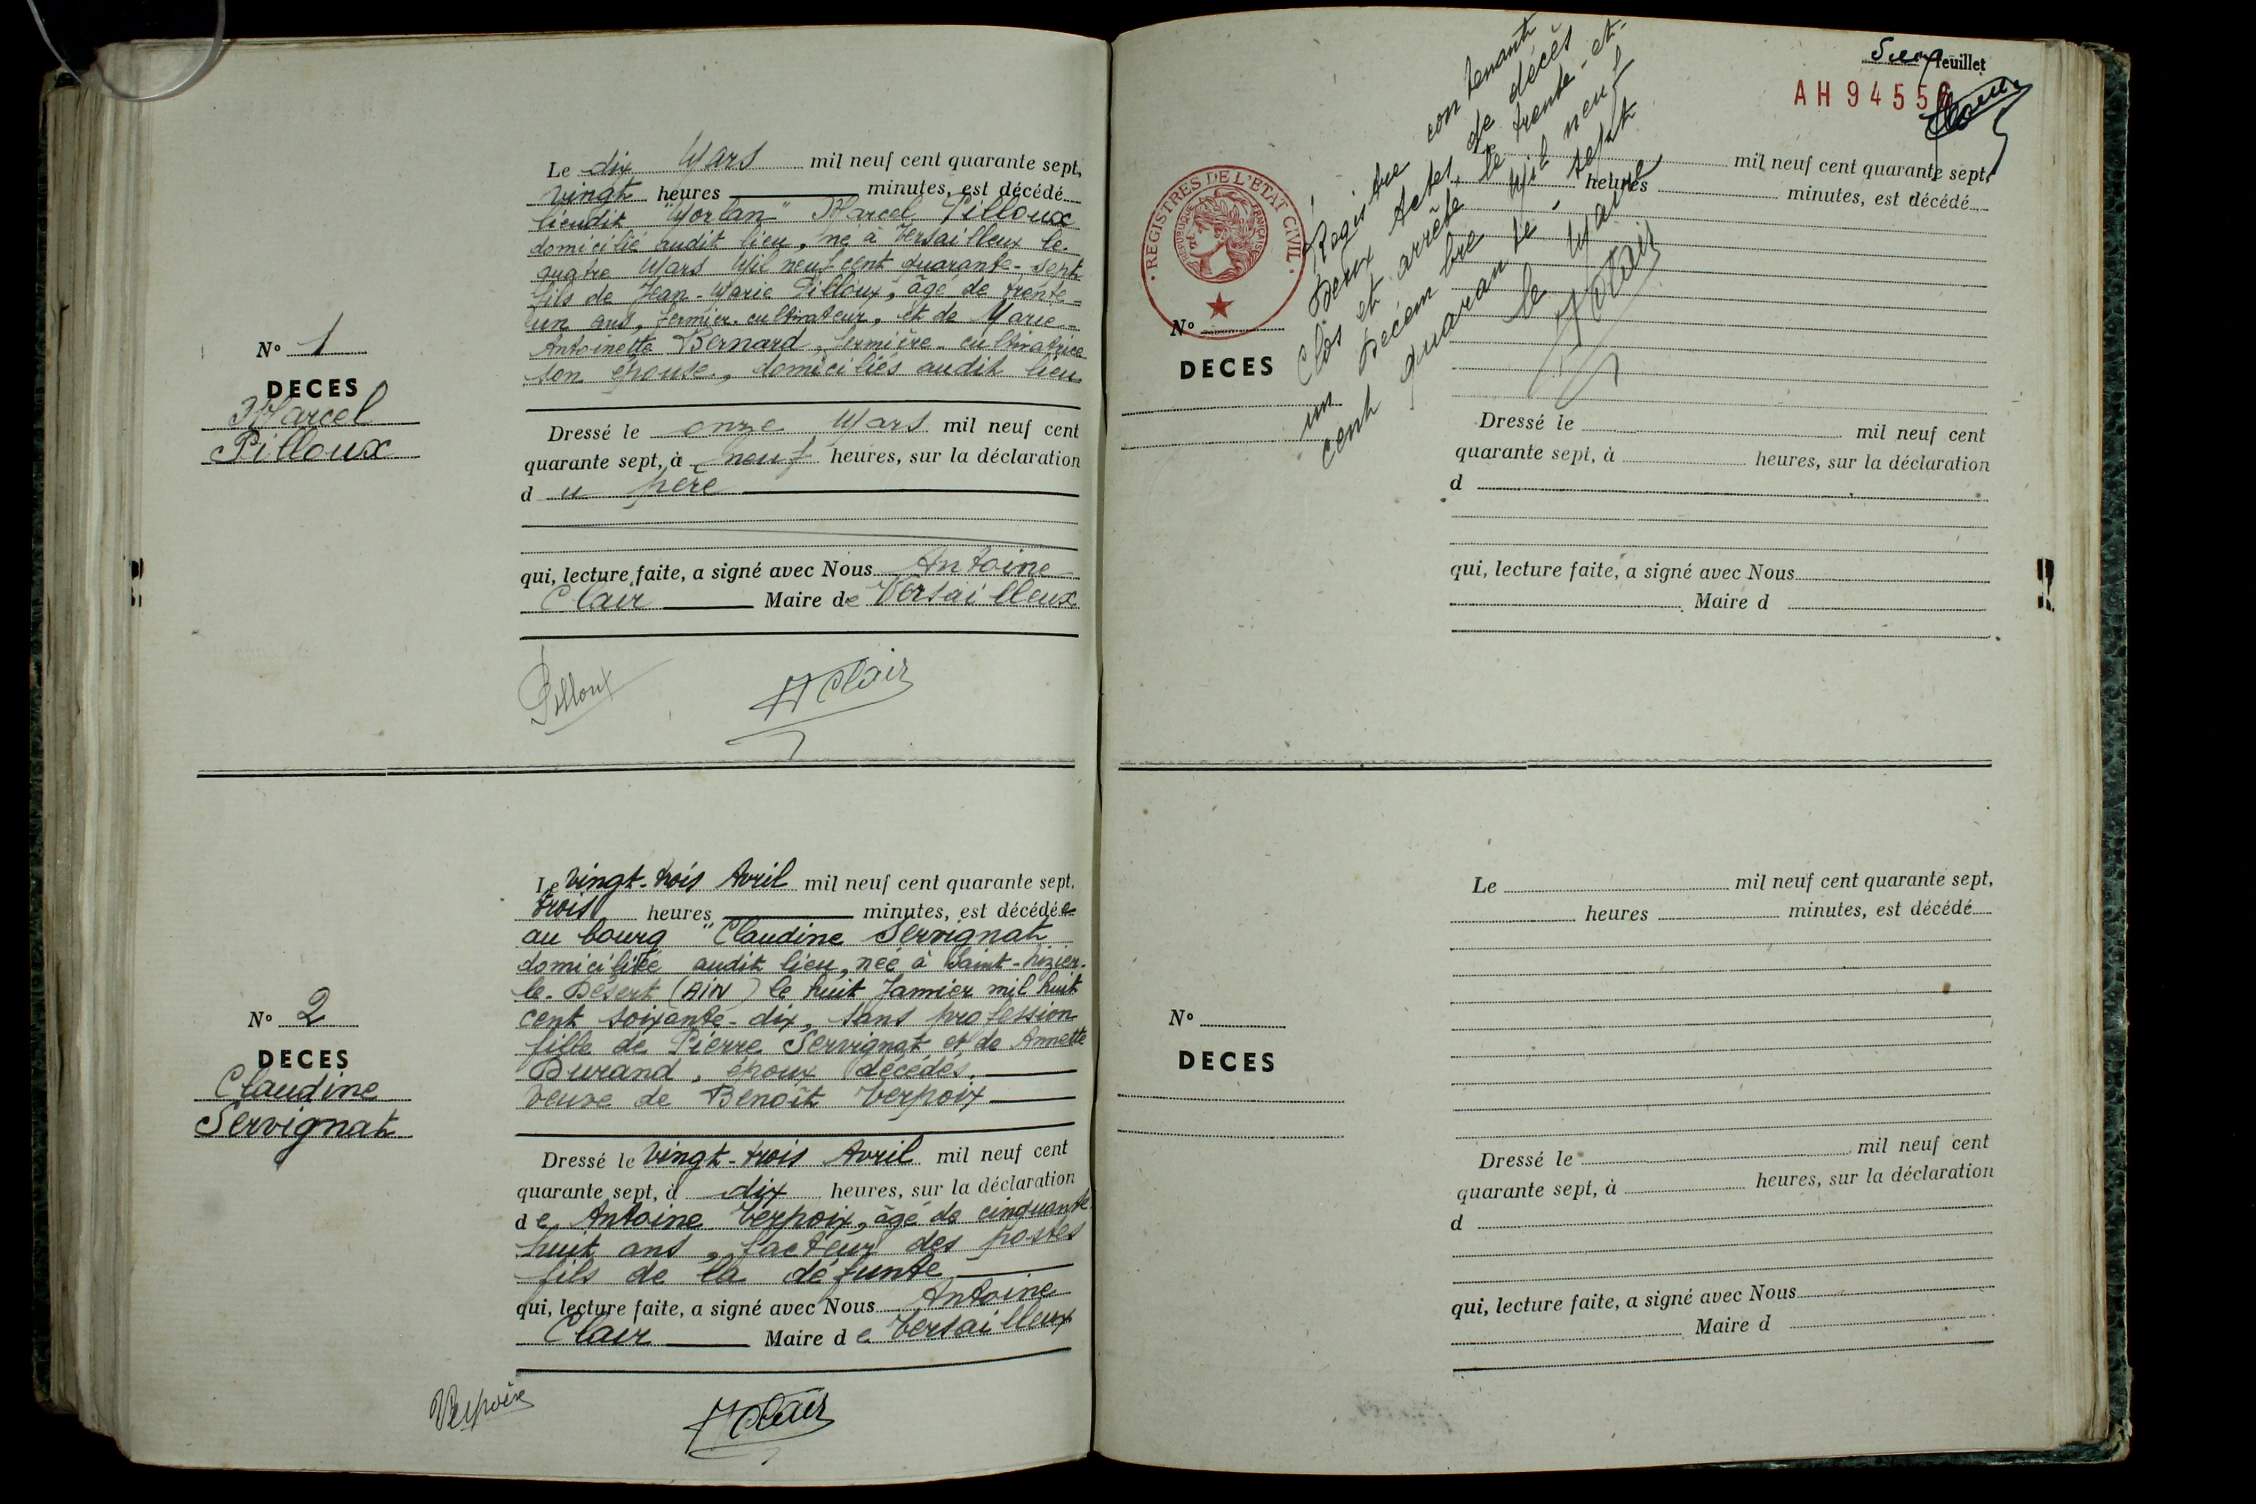 N° 1
DECES
Marcel
Pilloux
Le dix Mars mil neuf cent quarante sept,
vingt heures minutes, est décédé
lieudit "Morlan" Marcel Pilloux
domicilié audit lieu, né à Versailleux le
quatre Mars Mil neuf cent quarante-sept
fils de Jean-Marie Pilloux, âgé de trente-
un ans, fermier-cultivateur, et de Marie-
Antoinette Bernard, fermière-cultivatrice
son épouse, domiciliés audit lieu
Dressé le onze Mars mil neuf cent
quarante sept, à neuf heures, sur la déclaration
du père
qui, lecture faite, a signé avec Nous Antoine
Clair Maire de Versailleux
Pilloux
A Clair
N° 2
DECES
Claudine
Servignat
Le vingt-trois Avril mil neuf cent quarante sept,
trois heures minutes, est décédée
au bourg "Claudine Servignat
domiciliée audit lieu, née à Saint-Nizier-
le-Désert (AIN) le huit Janvier mil huit
cent soixante-dix, sans profession
fille de Pierre Servignat et de Annette
Durand, époux décédés,
Veuve de Benoît Verpoix
Dressé le vingt-trois Avril mil neuf cent
quarante sept, à dix heures, sur la déclaration
de Antoine Verpoix, âgé de cinquante
huit ans, facteur des postes
fils de la défunte
qui, lecture faite, a signé avec Nous Antoine
Clair Maire de Versailleux
Verpoix
A Clair
feuillet
AH 9455
REGISTRES DE L'ETAT CIVIL
REPUBLIQUE FRANÇAISE
Registre contenant
Deux Actes de décès
Clos et arrêté le trente-et-
un Décembre Mil neuf
cent quarante sept
le Maire
A Clair
N°
DECES
mil neuf cent quarante sept,
heures minutes, est décédé
Dressé le mil neuf cent
quarante sept, à heures, sur la déclaration
d
qui, lecture faite, a signé avec Nous
Maire d
N°
DECES
Le mil neuf cent quarante sept,
heures minutes, est décédé
Dressé le mil neuf cent
quarante sept, à heures, sur la déclaration
d
qui, lecture faite, a signé avec Nous
Maire d